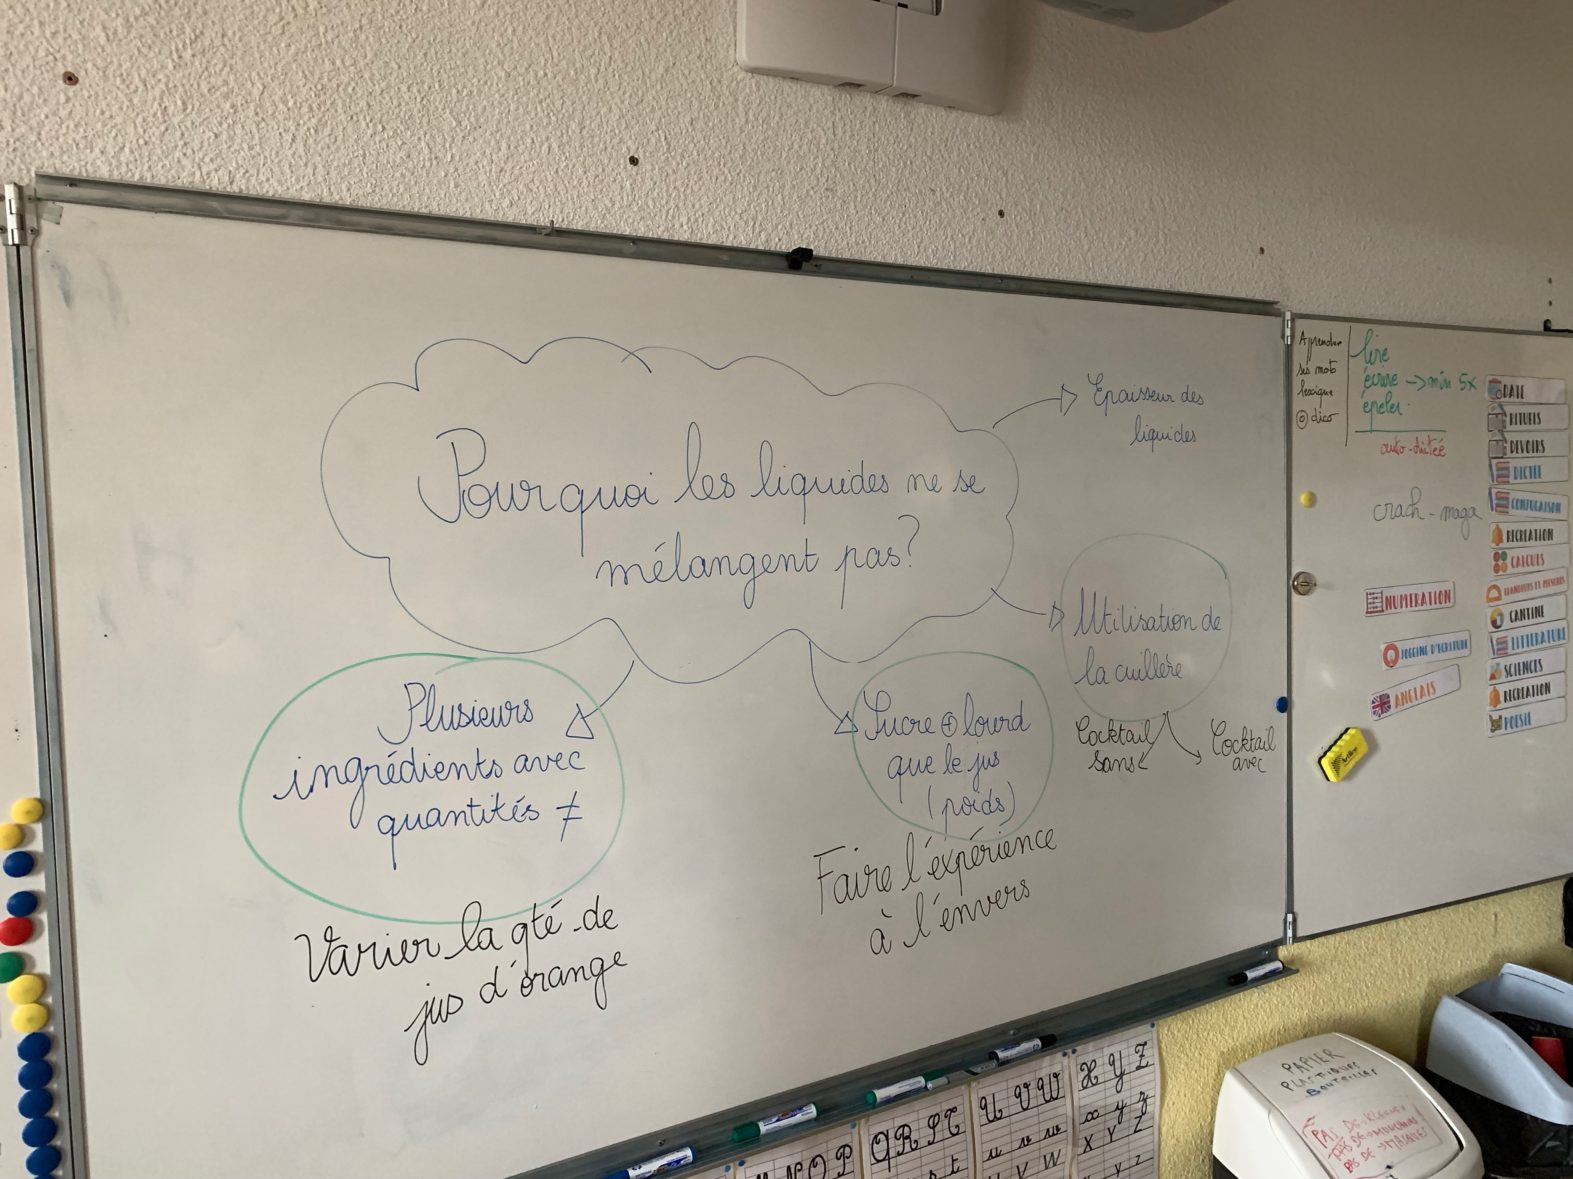 Pourquoi les liquides ne se
mélangent pas?
Epaisseur des
liquides
Utilisation de
la cuillère
Cocktail
sans
Cocktail
avec
Plusieurs
ingrédients avec
quantités ≠
Varier la qté de
jus d'orange
Sucre ⊕ lourd
que le jus
(poids)
Faire l'expérience
à l'envers
Apprendre
ses mots
lexique
dico
lire
écrire -> min 5x
épeler
auto-dictée
crach - maga
NUMERATION
JOGGING D'ECRITURE
ANGLAIS
DATE
RITUELS
DEVOIRS
DICTEE
CONJUGAISON
RECREATION
CALCULS
GRANDEURS ET MESURES
CANTINE
LITTERATURE
SCIENCES
RECREATION
POESIE
N O P
Q R S T
s t
U V W
u v w
V W
X Y Z
x y z
X Y Z
y z
PAPIER
PLASTIQUES
BOUTEILLES
PAS DE KLEENEX
PAS DE MOUCHOIR
PAS DE